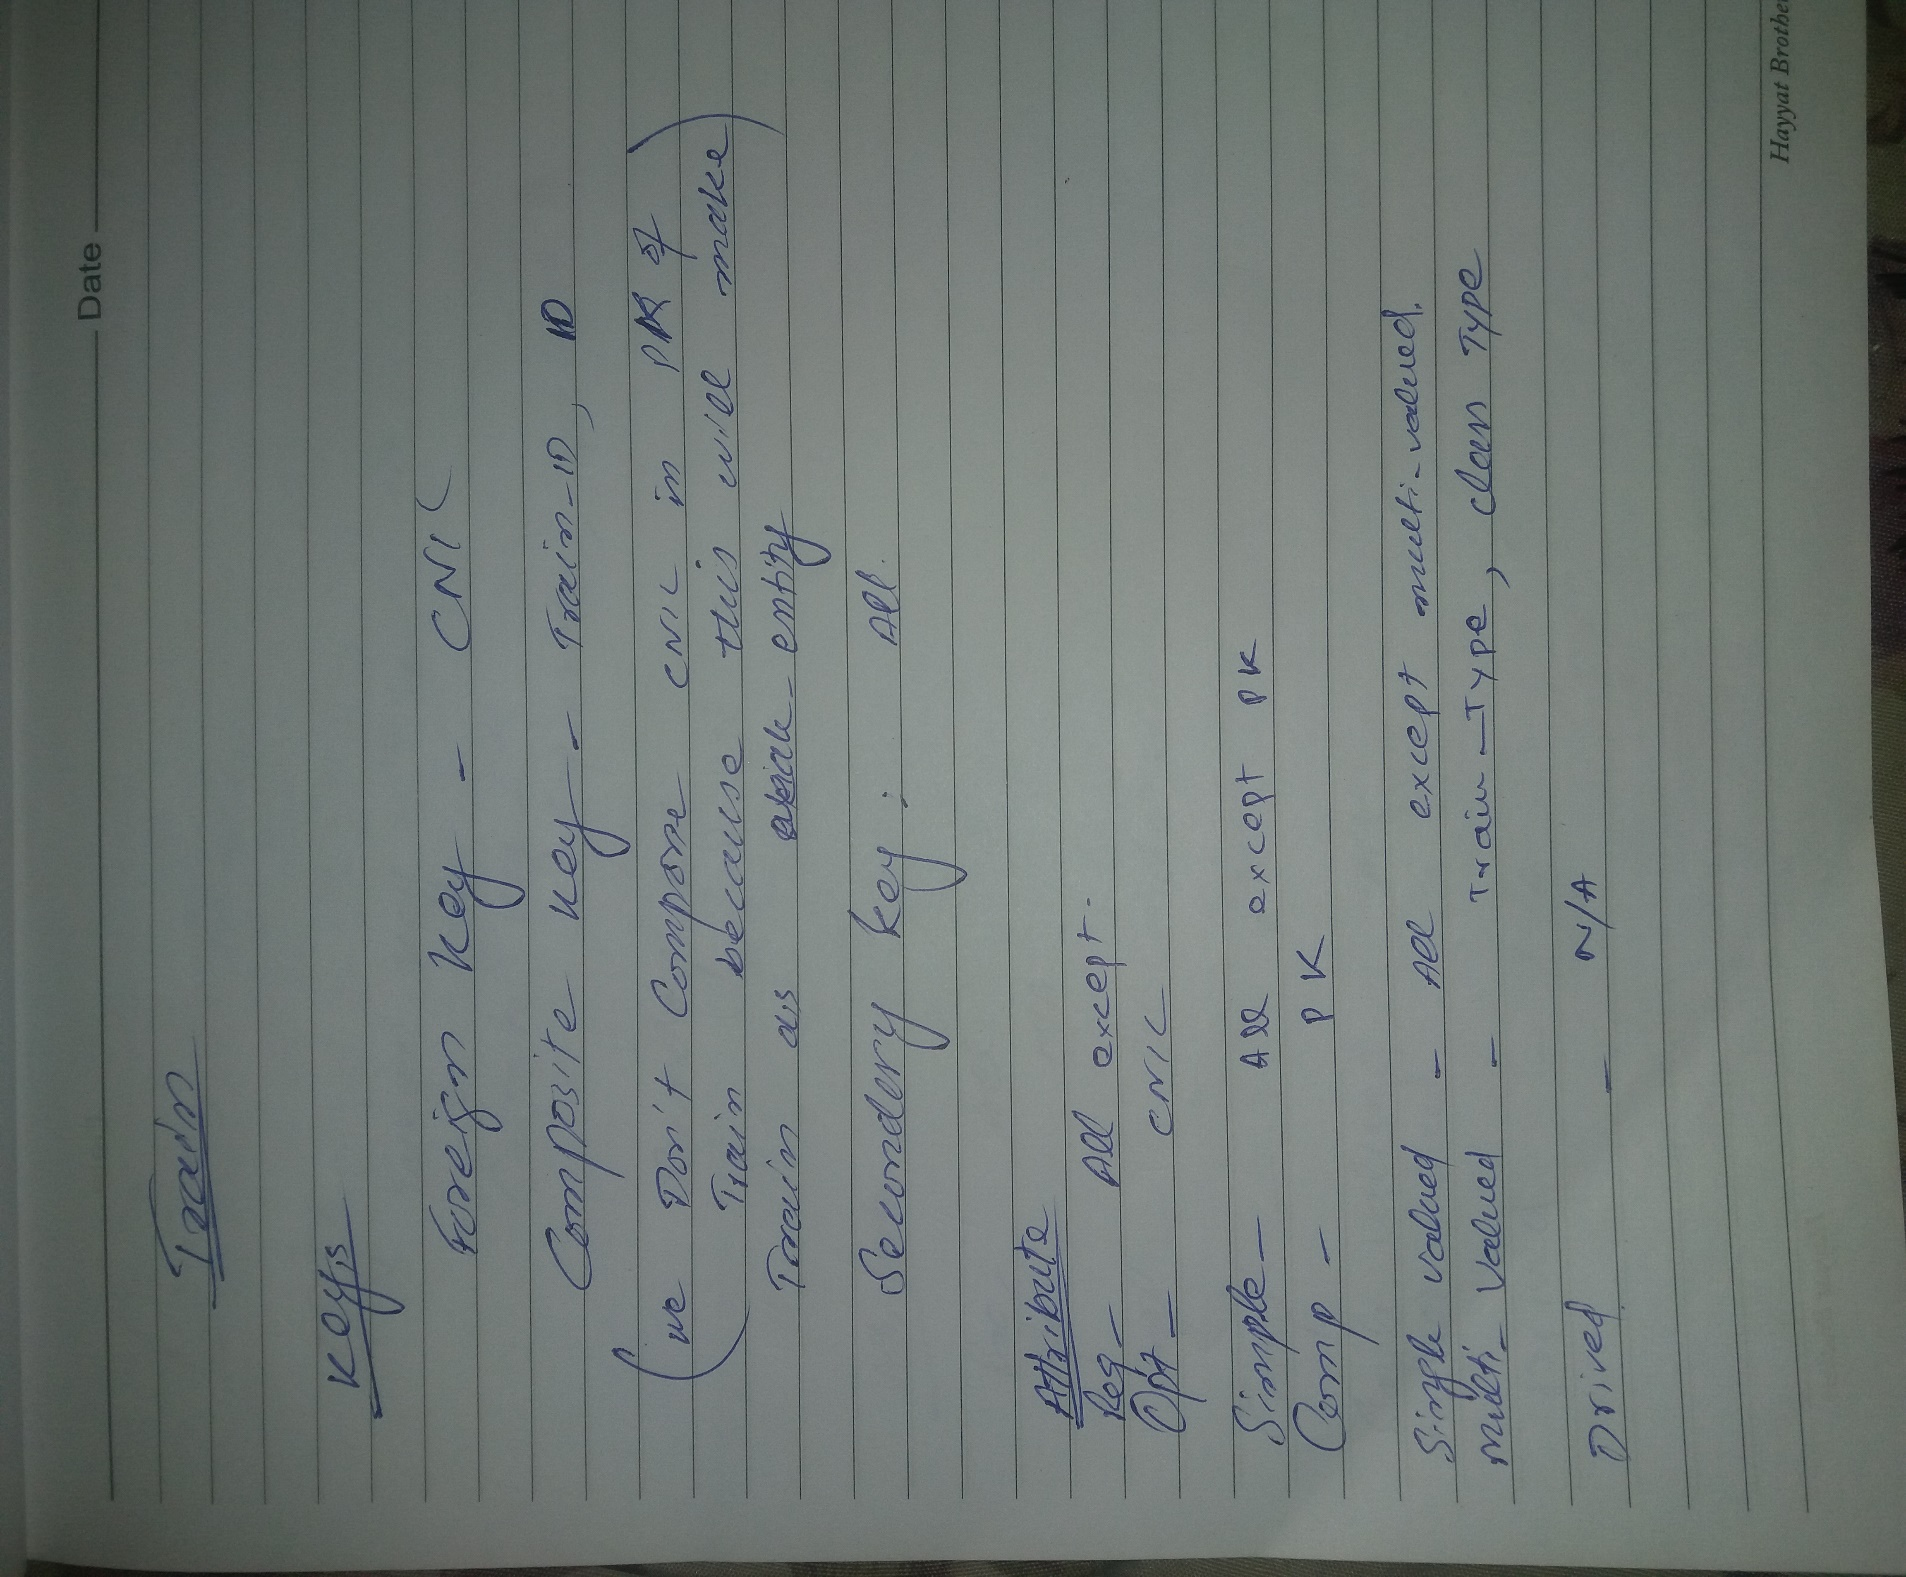 Date
Train
Keys
Foreign Key - CNIC
Composite Key - Train-ID, ID
(we Don't Compose CNIC in PK of
Train because this will make)
Train as weak-entity
Secondery Key : All.
Attribute
Req - All except.
Opt - CNIC
Simple - All except PK
Comp - PK
Single valued - All except multi-valued.
multi-valued - Train-Type, Class Type
Drived - N/A
Hayyat Brothe